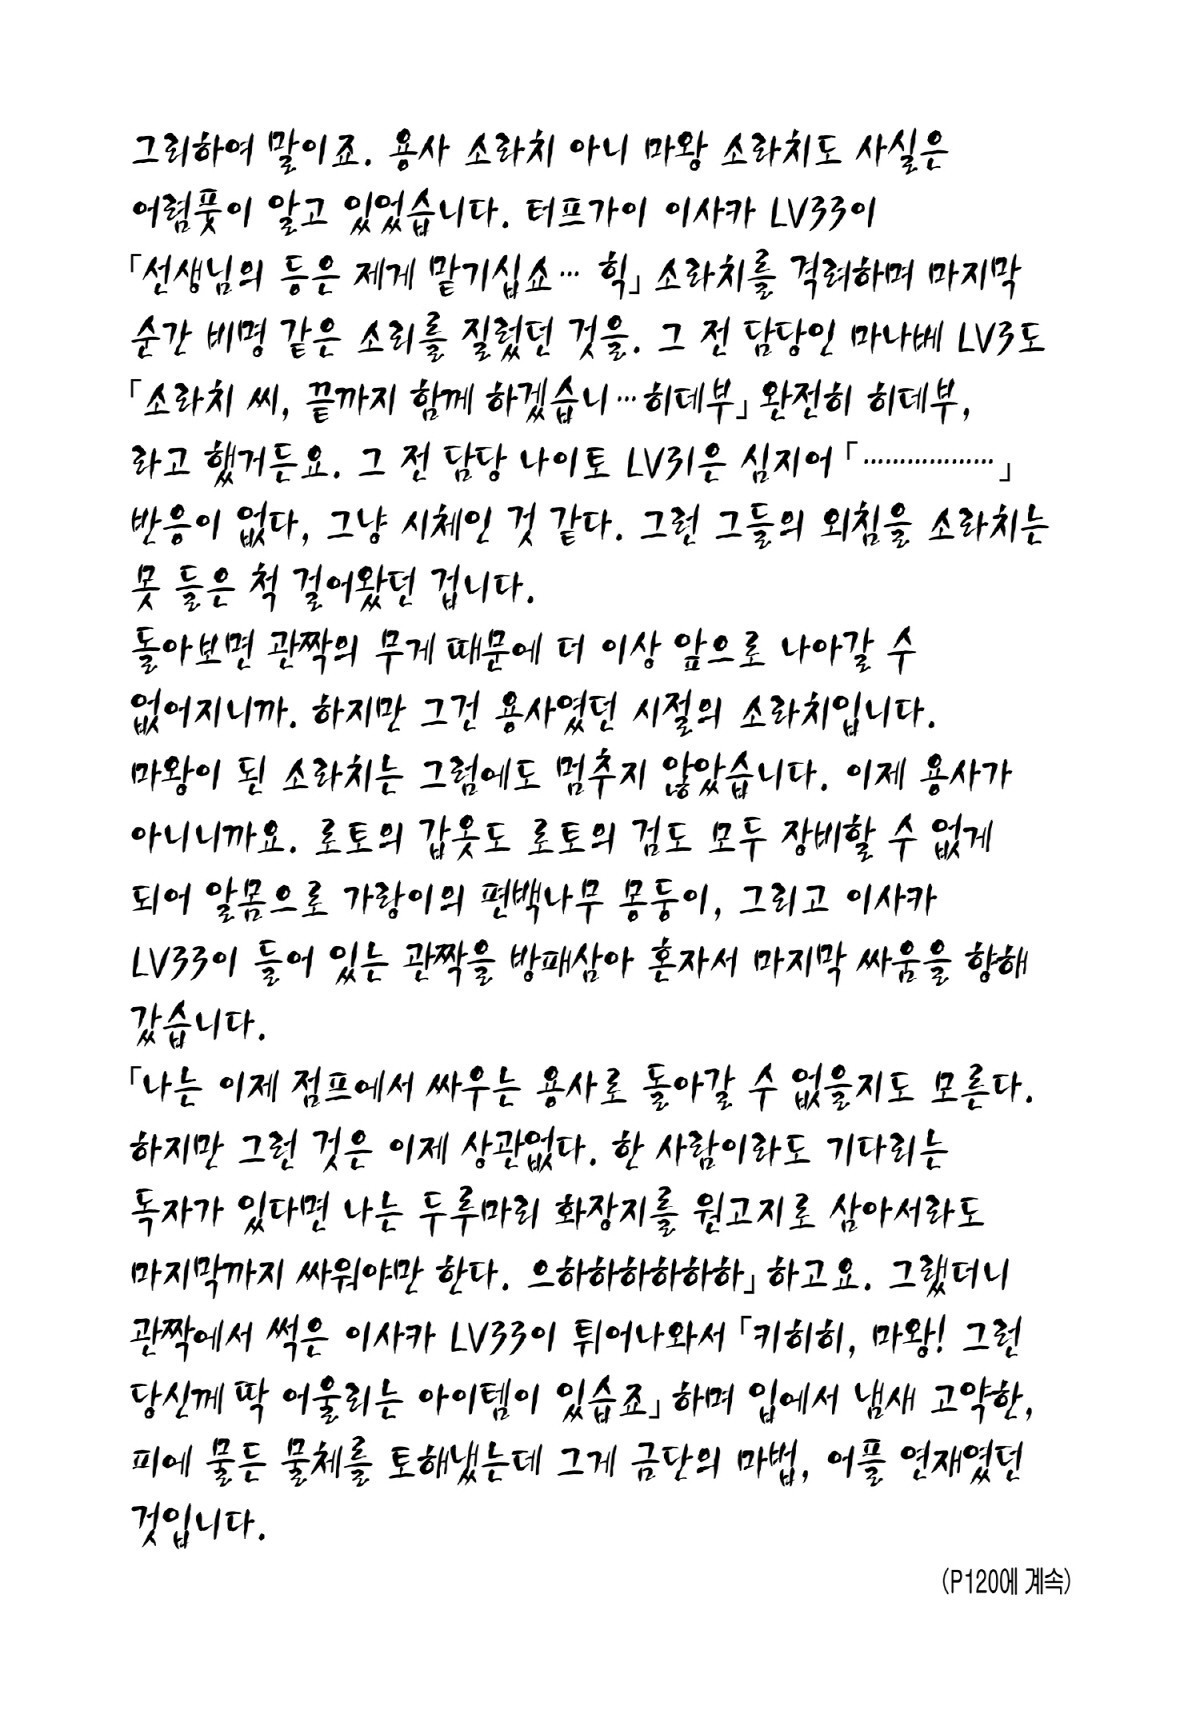 그리하여 말이죠. 용사 소라치 아니 마왕 소라치도 사실은
어렴풋이 알고 있었습니다. 터프가이 이사카 LV33이
「선생님의 등은 제게 맡기십쇼… 힉」 소라치를 격려하며 마지막
순간 비명 같은 소리를 질렀던 것을. 그 전 담당인 마나베 LV3도
「소라치 씨, 끝까지 함께 하겠습니…히데부」 완전히 히데부,
라고 했거든요. 그 전 담당 나이토 LV31은 심지어 「………………」
반응이 없다, 그냥 시체인 것 같다. 그런 그들의 외침을 소라치는
못 들은 척 걸어왔던 겁니다.
돌아보면 관짝의 무게 때문에 더 이상 앞으로 나아갈 수
없어지니까. 하지만 그건 용사였던 시절의 소라치입니다.
마왕이 된 소라치는 그럼에도 멈추지 않았습니다. 이제 용사가
아니니까요. 로토의 갑옷도 로토의 검도 모두 장비할 수 없게
되어 알몸으로 가랑이의 편백나무 몽둥이, 그리고 이사카
LV33이 들어 있는 관짝을 방패삼아 혼자서 마지막 싸움을 향해
갔습니다.
「나는 이제 점프에서 싸우는 용사로 돌아갈 수 없을지도 모른다.
하지만 그런 것은 이제 상관없다. 한 사람이라도 기다리는
독자가 있다면 나는 두루마리 화장지를 원고지로 삼아서라도
마지막까지 싸워야만 한다. 으하하하하하하」 하고요. 그랬더니
관짝에서 썩은 이사카 LV33이 튀어나와서 「키히히, 마왕! 그런
당신께 딱 어울리는 아이템이 있습죠」 하며 입에서 냄새 고약한,
피에 물든 물체를 토해냈는데 그게 금단의 마법, 어플 연재였던
것입니다.
(P120에 계속)